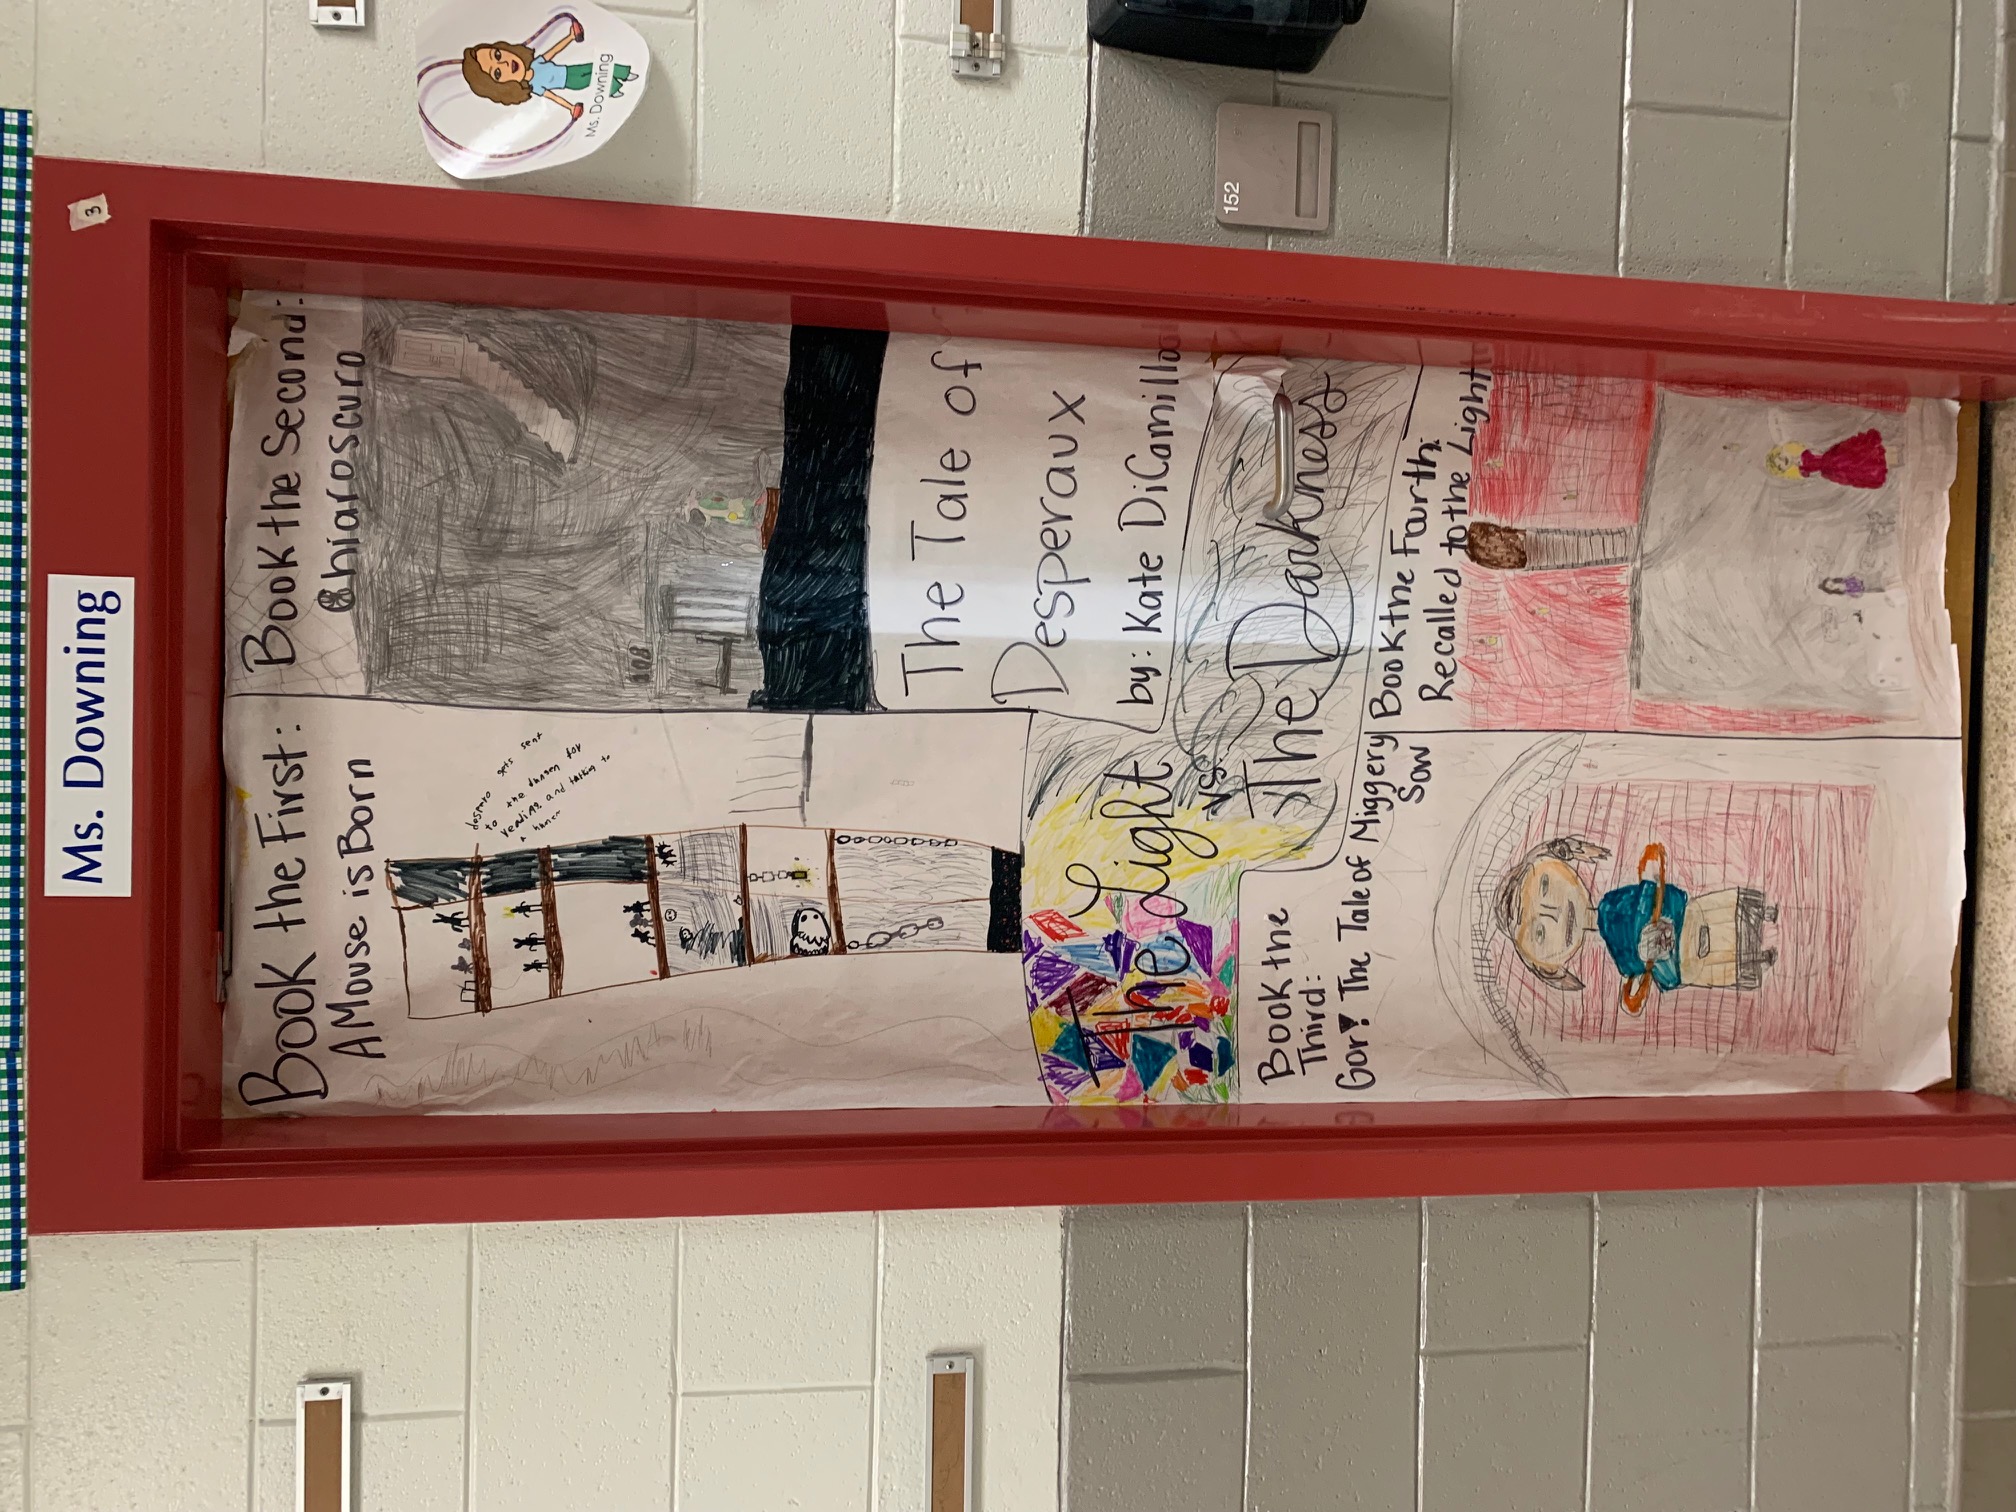 Ms. Downing
3
Ms. Downing
152
Book the First:
A Mouse is Born
despero gets sent
to the dungen for
reading and talking to
a human
Book the Second:
Chiaroscuro
The Tale of
Desperaux
by: Kate DiCamillo
The Light
vs.
The Darkness
Book the
Third:
Gor! The Tale of Miggery
Sow
Book the Fourth:
Recalled to the Light